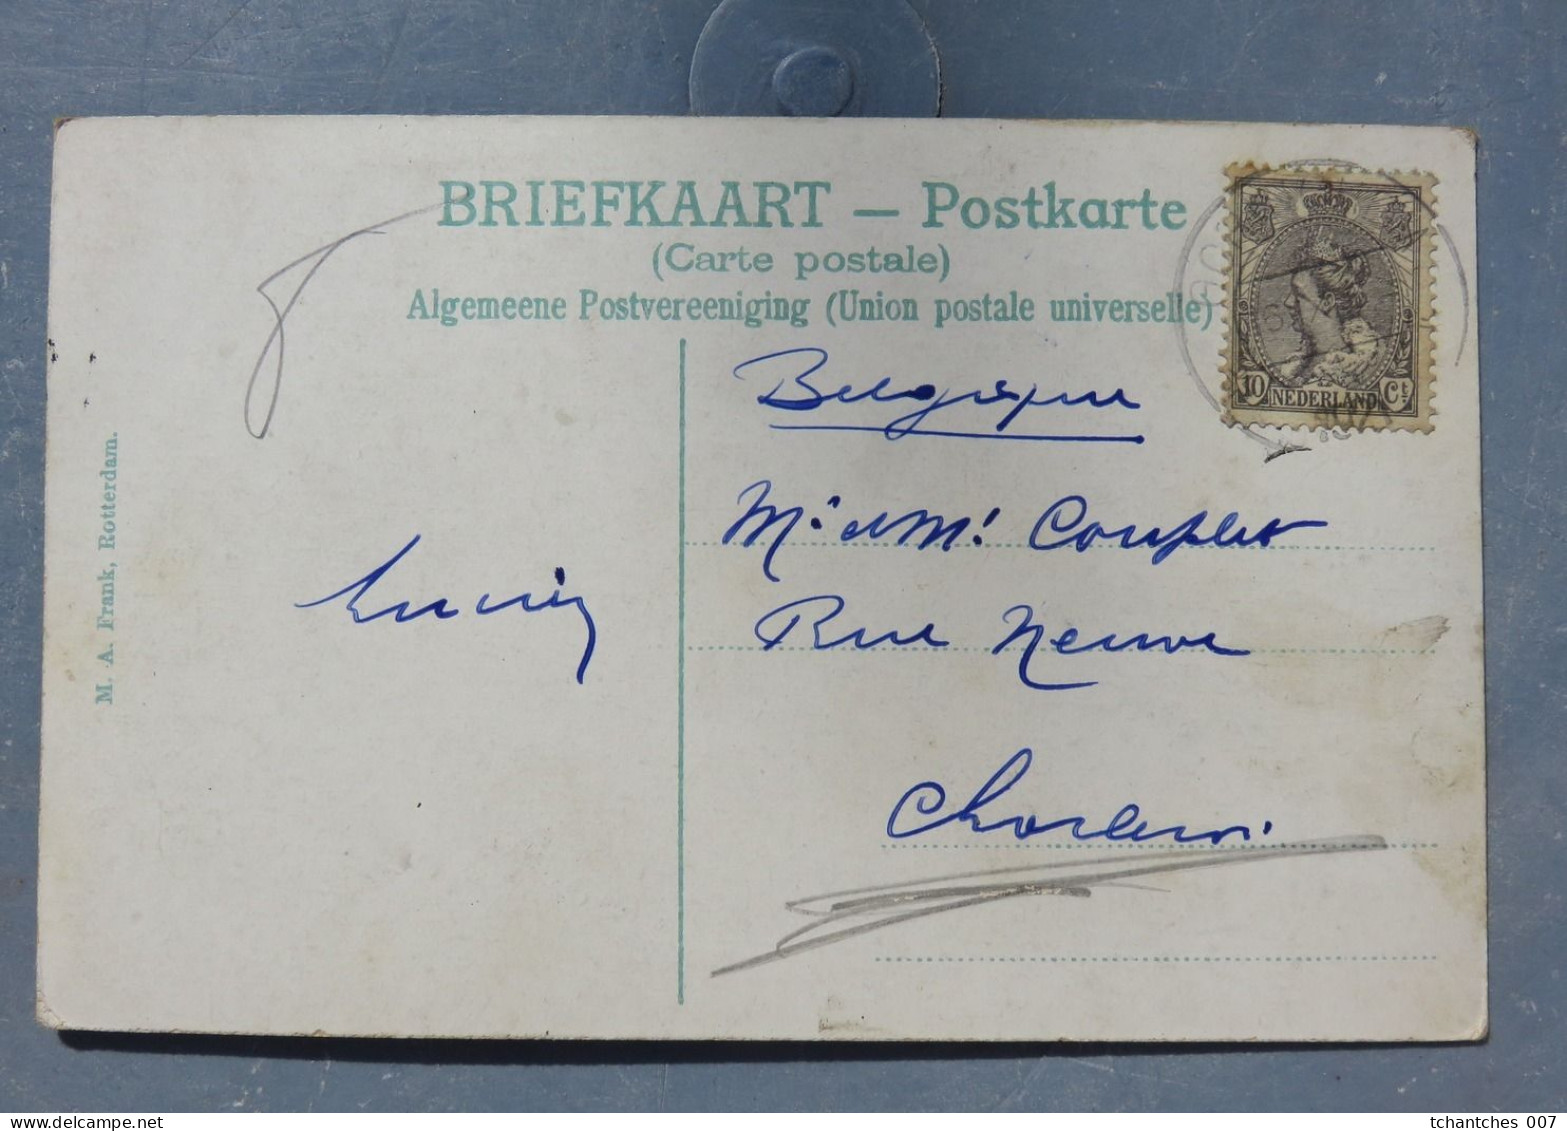 BRIEFKAART — Postkarte
(Carte postale)
Algemeene Postvereeniging (Union postale universelle)
10 NEDERLAND Ct
Belgique
Mr et Me Couplet
Rue Neuve
Charleroi
M. A. Frank, Rotterdam.
delcampe.net
tchantches 007